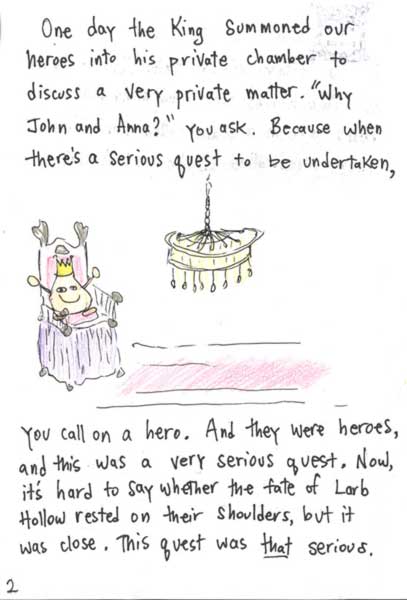 One day the King summoned our
heroes into his private chamber to
discuss a very private matter. "Why
John and Anna?" you ask. Because when
there's a serious quest to be undertaken,
You call on a hero. And they were heroes,
and this was a very serious quest. Now,
it's hard to say whether the fate of Larb
Hollow rested on their shoulders, but it
was close. This quest was that serious.
2